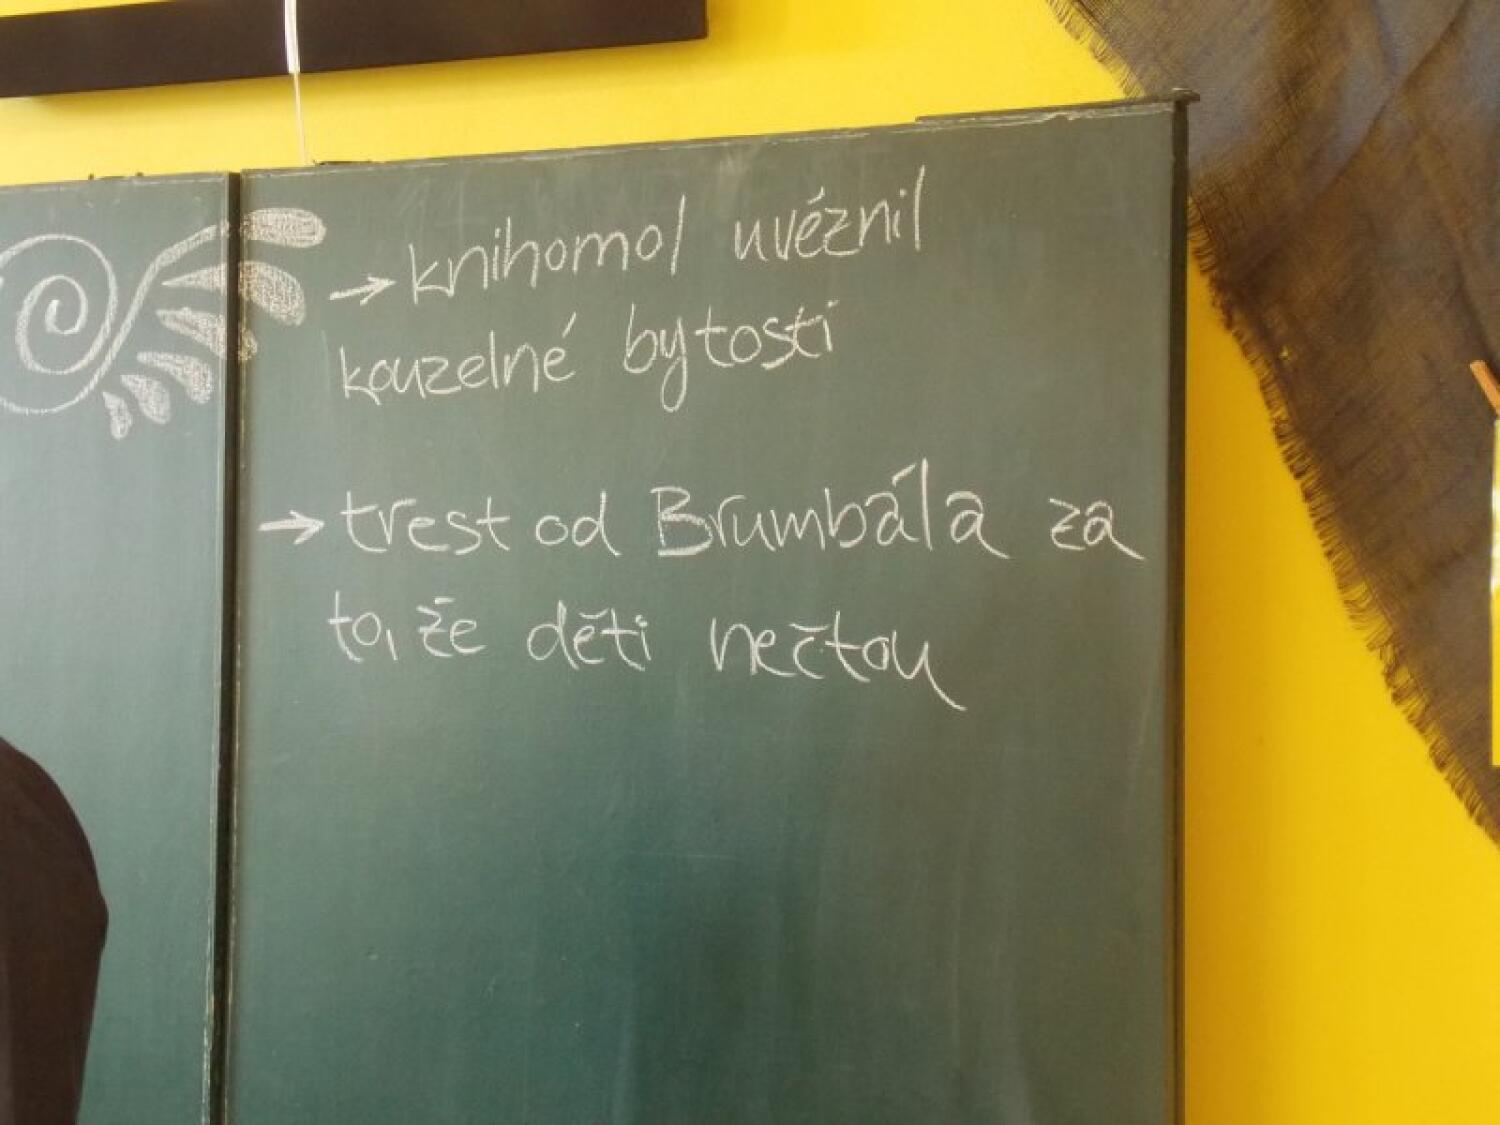 → knihomol uvéznil
kouzelné bytosti
→ trest od Brumbála za
to, že děti nečtou